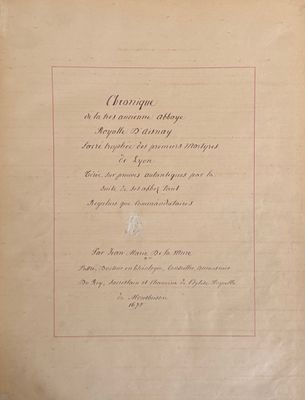 Chronique
de la tres ancienne Abbaye
Royalle D'Aisnay
Sacré trophée des premiers Martyres
de Lyon
Tirée sur preuves autantiques par la
suite de ses abbez tant
Reguliers que Commandataires
Par Jean Marie De la Mure
Prestre, Docteur en théologie, Conseiller, Aumosnier
Du Roy, Sacristain et Chanoine de l'Eglise Royalle
de Montbrison